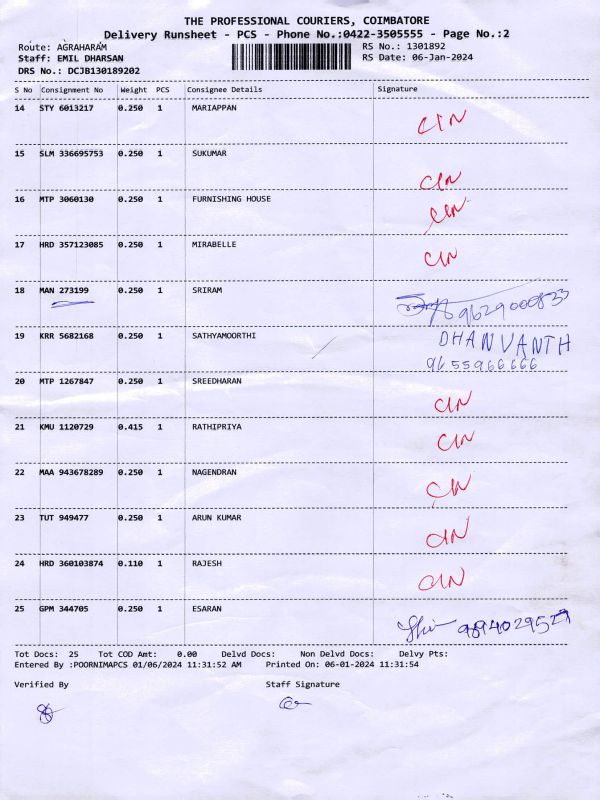 THE PROFESSIONAL COURIERS, COIMBATORE
Delivery Runsheet - PCS - Phone No.:0422-3505555 - Page No.:2
Route: AGRAHARAM RS No.: 1301892
Staff: EMIL DHARSAN RS Date: 06-Jan-2024
DRS No.: DCJB130189202
S No Consignment No Weight PCS Consignee Details Signature
14 STY 6013217 0.250 1 MARIAPPAN CIN
15 SLM 336695753 0.250 1 SUKUMAR CIN
16 MTP 3060130 0.250 1 FURNISHING HOUSE CIN
17 HRD 357123085 0.250 1 MIRABELLE CIN
18 MAN 273199 0.250 1 SRIRAM 9629000833
19 KRR 5682168 0.250 1 SATHYAMOORTHI DHANVANTH
9655966666
20 MTP 1267847 0.250 1 SREEDHARAN CIN
21 KMU 1120729 0.415 1 RATHIPRIYA CIN
22 MAA 943678289 0.250 1 NAGENDRAN CIN
23 TUT 949477 0.250 1 ARUN KUMAR CIN
24 HRD 360103874 0.110 1 RAJESH CIN
25 GPM 344705 0.250 1 ESARAN 9894029527
Tot Docs: 25 Tot COD Amt: 0.00 Delvd Docs: Non Delvd Docs: Delvy Pts:
Entered By :POORNIMAPCS 01/06/2024 11:31:52 AM Printed On: 06-01-2024 11:31:54
Verified By Staff Signature